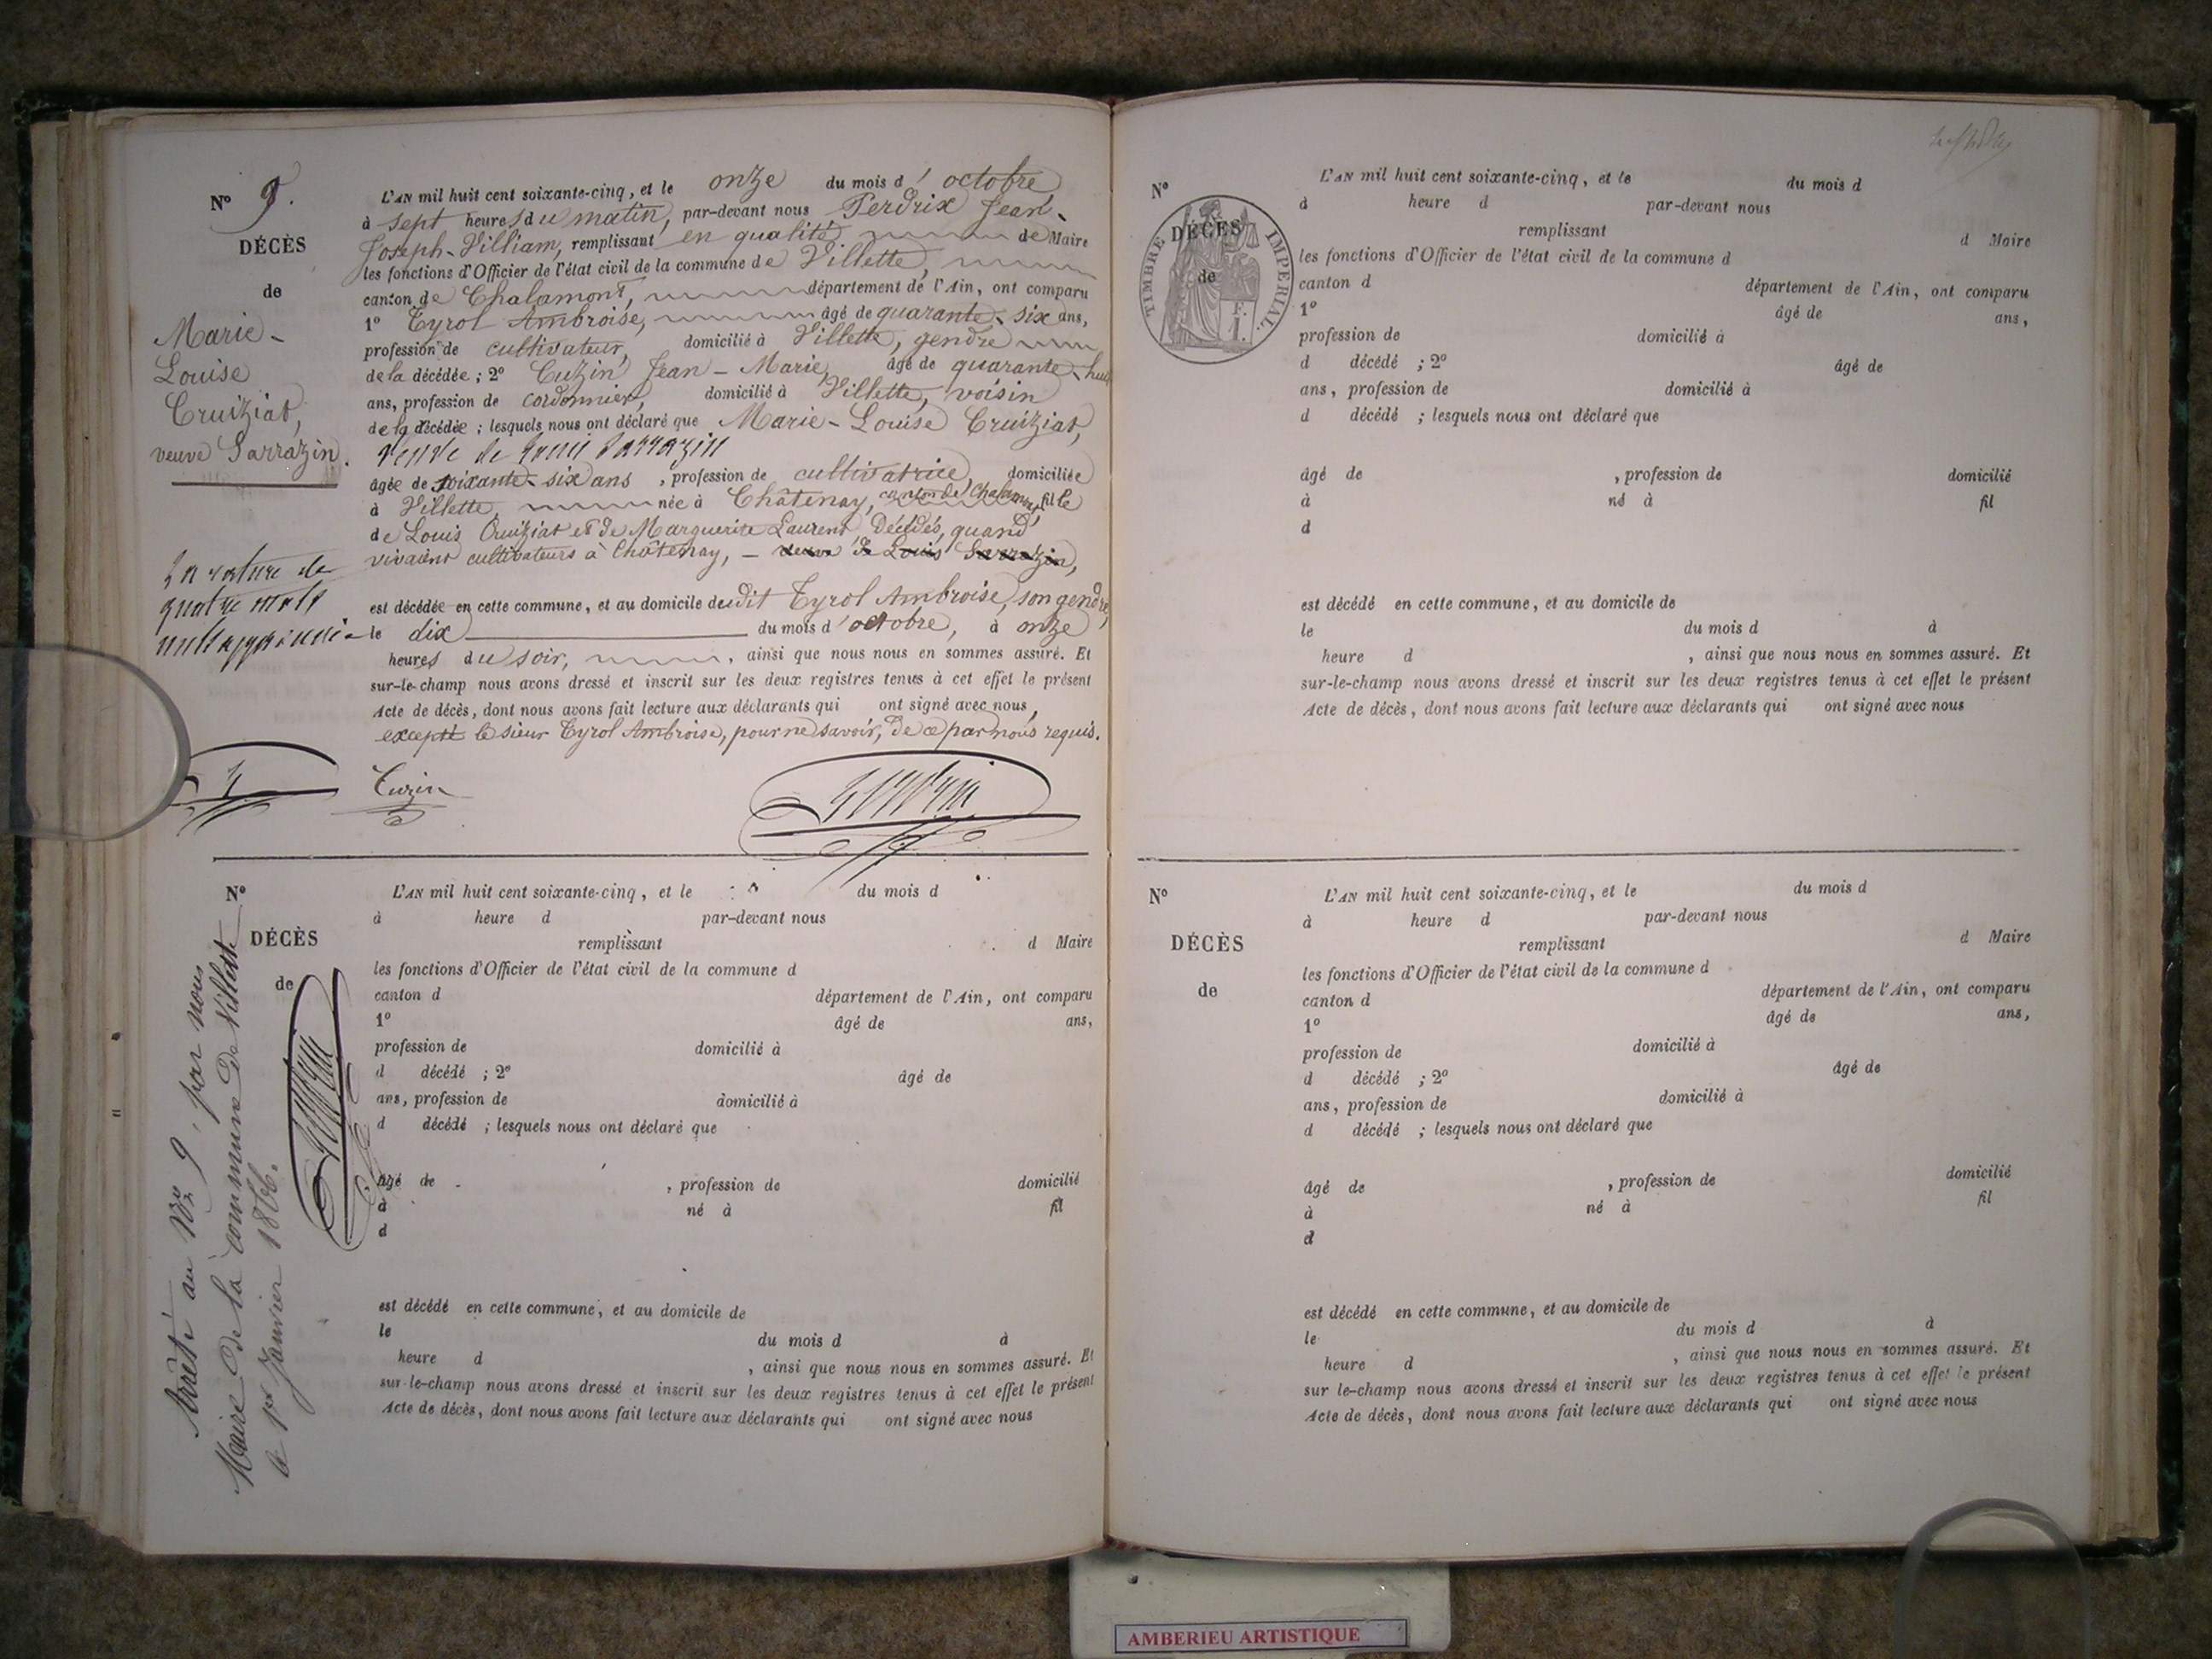 N° 9.
DÉCÈS
de
Marie-
Louise
Cruiziat,
veuve Sarrazin.
La rature de
quatre mots
nuls approuvée
L'AN mil huit cent soixante-cinq, et le onze du mois d'octobre
à sept heures du matin, par-devant nous Perdrix Jean-
Joseph-Villiam, remplissant en qualité de Maire
les fonctions d'Officier de l'état civil de la commune de Villette,
canton de Chalamont, département de l'Ain, ont comparu
1° Tyrol Ambroise, âgé de quarante-six ans,
profession de cultivateur, domicilié à Villette, gendre
de la décédée ; 2° Cuzin Jean-Marie, âgé de quarante-huit
ans, profession de cordonnier, domicilié à Villette, voisin
de la décédée ; lesquels nous ont déclaré que Marie-Louise Cruiziat,
veuve de Louis Sarrazin
âgée de soixante-six ans, profession de cultivatrice, domiciliée
à Villette, née à Châtenay, canton de Chalamont, fille
de Louis Cruiziat et de Marguerite Laurent décédés, quand
vivaient cultivateurs à Châtenay, - veuve de Louis Sarrazin,
est décédée en cette commune, et au domicile dudit Tyrol Ambroise, son gendre,
le dix du mois d'octobre, à onze
heures du soir, , ainsi que nous nous en sommes assuré. Et
sur-le-champ nous avons dressé et inscrit sur les deux registres tenus à cet effet le présent
Acte de décès, dont nous avons fait lecture aux déclarants qui ont signé avec nous,
excepté le sieur Tyrol Ambroise, pour ne savoir, de ce par nous requis.
Cuzin
Perdrix
N°
DÉCÈS
de
L'AN mil huit cent soixante-cinq, et le du mois d
à heure d par-devant nous
remplissant d Maire
les fonctions d'Officier de l'état civil de la commune d
canton d département de l'Ain, ont comparu
1° âgé de ans,
profession de domicilié à
d décédé ; 2° âgé de
ans, profession de domicilié à
d décédé ; lesquels nous ont déclaré que
âgé de , profession de domicilié
à né à fil
d
est décédé en cette commune, et au domicile de
le du mois d à
heure d , ainsi que nous nous en sommes assuré. Et
sur-le-champ nous avons dressé et inscrit sur les deux registres tenus à cet effet le présent
Acte de décès, dont nous avons fait lecture aux déclarants qui ont signé avec nous
Arrêté au N° 9, par nous
Maire de la commune de Villette
le 1er Janvier 1866.
Perdrix
N°
DÉCÈS
de
TIMBRE IMPERIAL.
L'AN mil huit cent soixante-cinq, et le du mois d
à heure d par-devant nous
remplissant d Maire
les fonctions d'Officier de l'état civil de la commune d
canton d département de l'Ain, ont comparu
1° âgé de ans,
profession de domicilié à
d décédé ; 2° âgé de
ans, profession de domicilié à
d décédé ; lesquels nous ont déclaré que
âgé de , profession de domicilié
à né à fil
d
est décédé en cette commune, et au domicile de
le du mois d à
heure d , ainsi que nous nous en sommes assuré. Et
sur-le-champ nous avons dressé et inscrit sur les deux registres tenus à cet effet le présent
Acte de décès, dont nous avons fait lecture aux déclarants qui ont signé avec nous
N°
DÉCÈS
de
L'AN mil huit cent soixante-cinq, et le du mois d
à heure d par-devant nous
remplissant d Maire
les fonctions d'Officier de l'état civil de la commune d
canton d département de l'Ain, ont comparu
1° âgé de ans,
profession de domicilié à
d décédé ; 2° âgé de
ans, profession de domicilié à
d décédé ; lesquels nous ont déclaré que
âgé de , profession de domicilié
à né à fil
d
est décédé en cette commune, et au domicile de
le du mois d à
heure d , ainsi que nous nous en sommes assuré. Et
sur le-champ nous avons dressé et inscrit sur les deux registres tenus à cet effet le présent
Acte de décès, dont nous avons fait lecture aux déclarants qui ont signé avec nous
AMBERIEU ARTISTIQUE